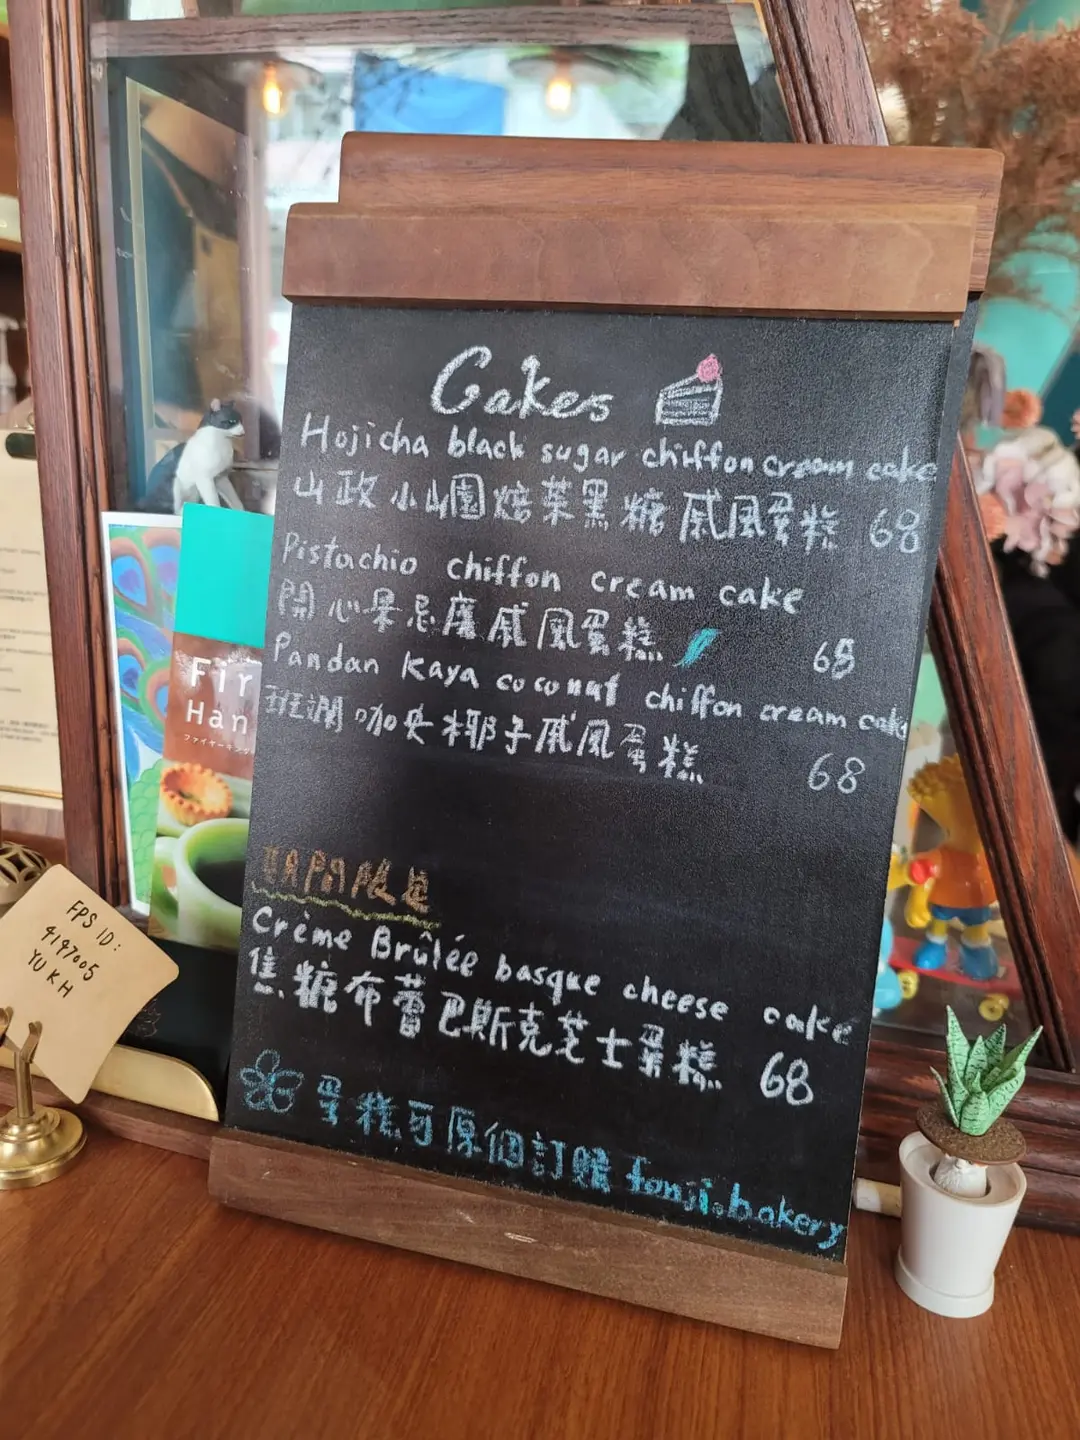 Cakes
Hojicha black sugar chiffon cream cake
山政小山園焙茶黑糖戚風蛋糕 68
Pistachio chiffon cream cake
開心果忌廉戚風蛋糕 68
Pandan Kaya coconut chiffon cream cake
班瀾咖央椰子戚風蛋糕 68
Crème Brûlée basque cheese cake
焦糖布蕾巴斯克芝士蛋糕 68
蛋糕可原個訂購 fonji.bakery
Fir
Han
ファイヤーキング
FPS ID:
4197005
YU KH